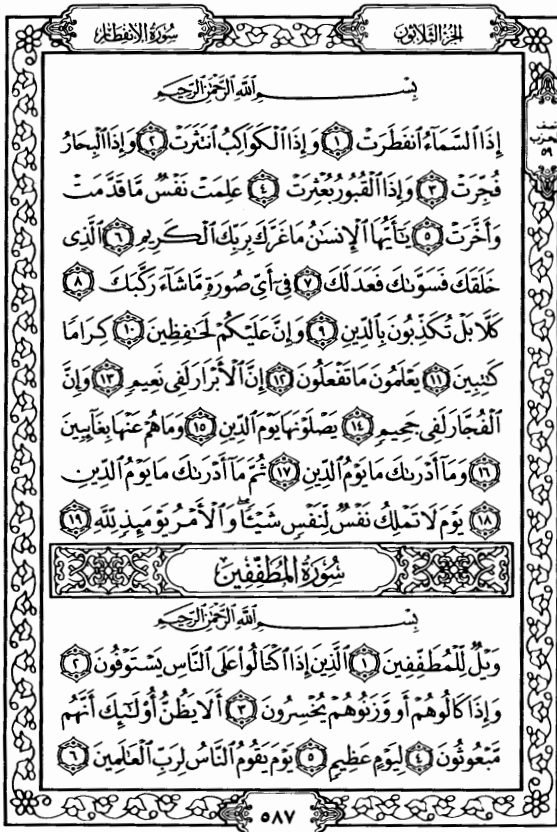 الجزء الثلاثون
سورة الانفطار
نصف
الحزب
٥٩
بِسْمِ ٱللَّهِ ٱلرَّحْمَٰنِ ٱلرَّحِيمِ
إِذَا ٱلسَّمَآءُ ٱنفَطَرَتْ ۝١ وَإِذَا ٱلْكَوَاكِبُ ٱنتَثَرَتْ ۝٢ وَإِذَا ٱلْبِحَارُ
فُجِّرَتْ ۝٣ وَإِذَا ٱلْقُبُورُ بُعْثِرَتْ ۝٤ عَلِمَتْ نَفْسٌ مَّا قَدَّمَتْ
وَأَخَّرَتْ ۝٥ يَٰٓأَيُّهَا ٱلْإِنسَٰنُ مَا غَرَّكَ بِرَبِّكَ ٱلْكَرِيمِ ۝٦ ٱلَّذِى
خَلَقَكَ فَسَوَّىٰكَ فَعَدَلَكَ ۝٧ فِىٓ أَىِّ صُورَةٍ مَّا شَآءَ رَكَّبَكَ ۝٨
كَلَّا بَلْ تُكَذِّبُونَ بِٱلدِّينِ ۝٩ وَإِنَّ عَلَيْكُمْ لَحَٰفِظِينَ ۝١٠ كِرَامًا
كَٰتِبِينَ ۝١١ يَعْلَمُونَ مَا تَفْعَلُونَ ۝١٢ إِنَّ ٱلْأَبْرَارَ لَفِى نَعِيمٍ ۝١٣ وَإِنَّ
ٱلْفُجَّارَ لَفِى جَحِيمٍ ۝١٤ يَصْلَوْنَهَا يَوْمَ ٱلدِّينِ ۝١٥ وَمَا هُمْ عَنْهَا بِغَآئِبِينَ
۝١٦ وَمَآ أَدْرَىٰكَ مَا يَوْمُ ٱلدِّينِ ۝١٧ ثُمَّ مَآ أَدْرَىٰكَ مَا يَوْمُ ٱلدِّينِ
۝١٨ يَوْمَ لَا تَمْلِكُ نَفْسٌ لِّنَفْسٍ شَيْـًٔا ۖ وَٱلْأَمْرُ يَوْمَئِذٍ لِّلَّهِ ۝١٩
سُورَةُ الْمُطَفِّفِينَ
بِسْمِ ٱللَّهِ ٱلرَّحْمَٰنِ ٱلرَّحِيمِ
وَيْلٌ لِّلْمُطَفِّفِينَ ۝١ ٱلَّذِينَ إِذَا ٱكْتَالُوا۟ عَلَى ٱلنَّاسِ يَسْتَوْفُونَ ۝٢
وَإِذَا كَالُوهُمْ أَو وَّزَنُوهُمْ يُخْسِرُونَ ۝٣ أَلَا يَظُنُّ أُو۟لَٰٓئِكَ أَنَّهُم
مَّبْعُوثُونَ ۝٤ لِيَوْمٍ عَظِيمٍ ۝٥ يَوْمَ يَقُومُ ٱلنَّاسُ لِرَبِّ ٱلْعَٰلَمِينَ ۝٦
٥٨٧